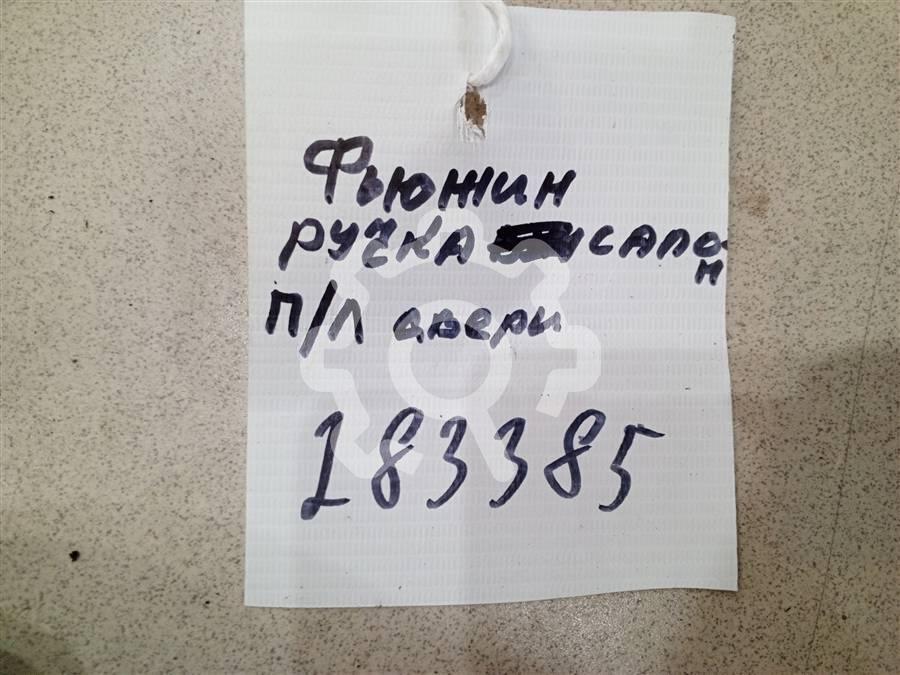 Фьюжин
ручка сало-
н
п/л двери
183385